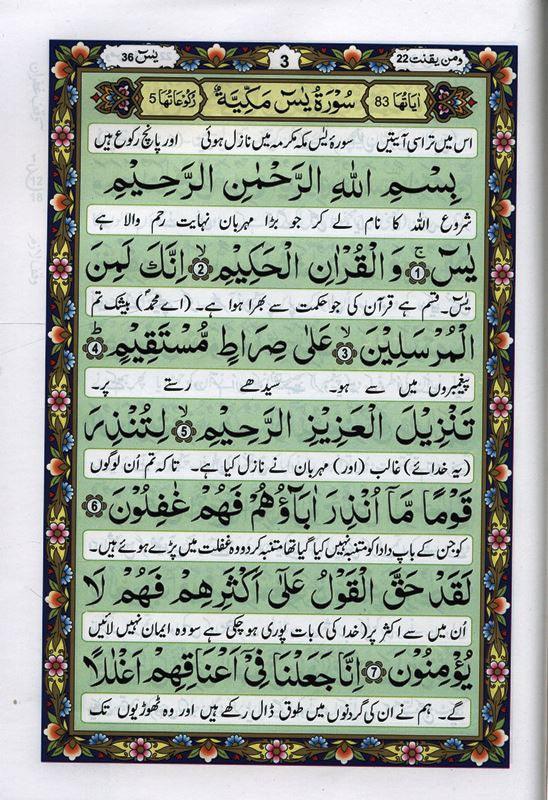 ومن یقنت 22
3
یٰسٓ 36
اٰيَاتُهَا 83
سُوْرَةُ يٰسٓ مَكِّيَّةٌ
رُكُوْعَاتُهَا 5
اس میں تراسی آیتیں سورۂ یٰسٓ مکہ مکرمہ میں نازل ہوئی اور پانچ رکوع ہیں
بِسْمِ اللهِ الرَّحْمٰنِ الرَّحِيْمِ
شروع اللہ کا نام لے کر جو بڑا مہربان نہایت رحم والا ہے
يٰسٓ ۚ 1 وَالْقُرْاٰنِ الْحَكِيْمِ ۙ 2 اِنَّكَ لَمِنَ
یٰسٓ۔ قسم ہے قرآن کی جو حکمت سے بھرا ہوا ہے۔ (اے محمدؐ) بیشک تم
الْمُرْسَلِيْنَ ۙ 3 عَلٰى صِرَاطٍ مُّسْتَقِيْمٍ ؕ 4
پیغمبروں میں سے ہو۔ سیدھے رستے پر۔
تَنْزِيْلَ الْعَزِيْزِ الرَّحِيْمِ ۙ 5 لِتُنْذِرَ
(یہ خدائے) غالب (اور) مہربان نے نازل کیا ہے۔ تاکہ تم اُن لوگوں
قَوْمًا مَّاۤ اُنْذِرَ اٰبَآؤُهُمْ فَهُمْ غٰفِلُوْنَ 6
کو جن کے باپ دادا کو متنبہ نہیں کیا گیا تھا متنبہ کر دو وہ غفلت میں پڑے ہوئے ہیں۔
لَقَدْ حَقَّ الْقَوْلُ عَلٰۤى اَكْثَرِهِمْ فَهُمْ لَا
اُن میں سے اکثر پر (خدا کی) بات پوری ہو چکی ہے سو وہ ایمان نہیں لائیں
يُؤْمِنُوْنَ 7 اِنَّا جَعَلْنَا فِيْۤ اَعْنَاقِهِمْ اَغْلٰلًا
گے۔ ہم نے ان کی گردنوں میں طوق ڈال رکھے ہیں اور وہ ٹھوڑیوں تک